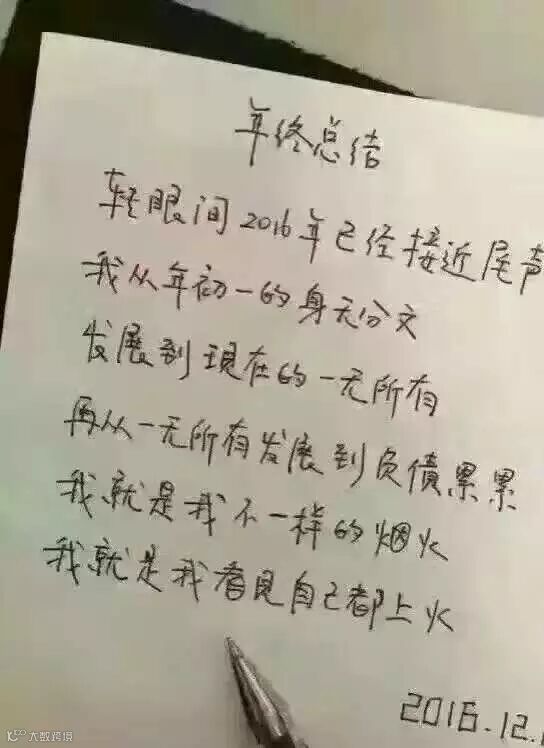 年终总结
转眼间2016年已经接近尾声
我从年初一的身无分文
发展到现在的一无所有
再从一无所有发展到负债累累
我就是我不一样的烟火
我就是我看见自己都上火
2016.12.
大数跨境